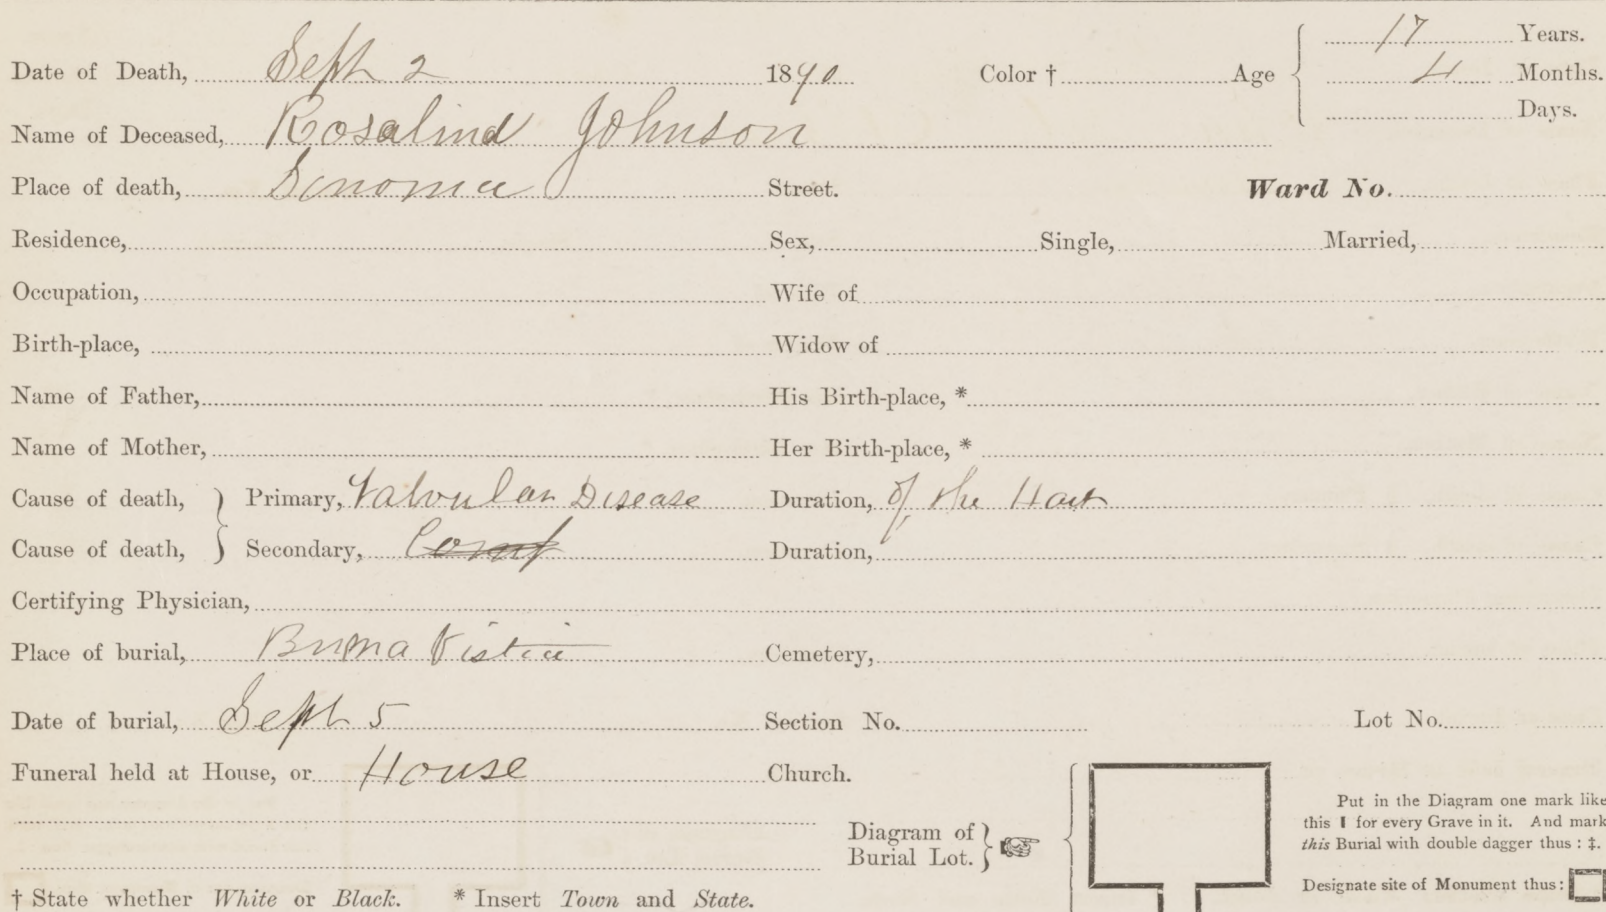 Date of Death, Sept 2 1890 Color † Age 17 Years.
4 Months.
Days.
Name of Deceased, Rosalind Johnson
Place of death, Sonoma Street. Ward No.
Residence, Sex, Single, Married,
Occupation, Wife of
Birth-place, Widow of
Name of Father, His Birth-place, *
Name of Mother, Her Birth-place, *
Cause of death, Primary, Valvular Disease Duration, of the Hart
Cause of death, Secondary, Duration,
Certifying Physician,
Place of burial, Buena Vista Cemetery,
Date of burial, Sept 5 Section No. Lot No.
Funeral held at House, or House Church.
Diagram of
Burial Lot.
Put in the Diagram one mark like
this ▮ for every Grave in it. And mark
this Burial with double dagger thus : ‡.
Designate site of Monument thus :
† State whether White or Black. * Insert Town and State.